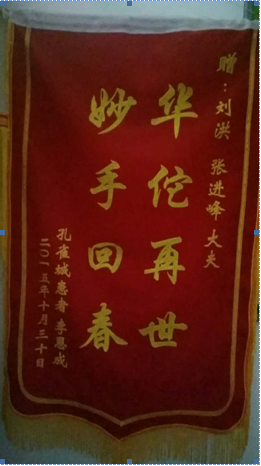 赠：刘洪 张进峰 大夫
华佗再世
妙手回春
孔雀城患者 李恩成
二〇一五年十月三十日